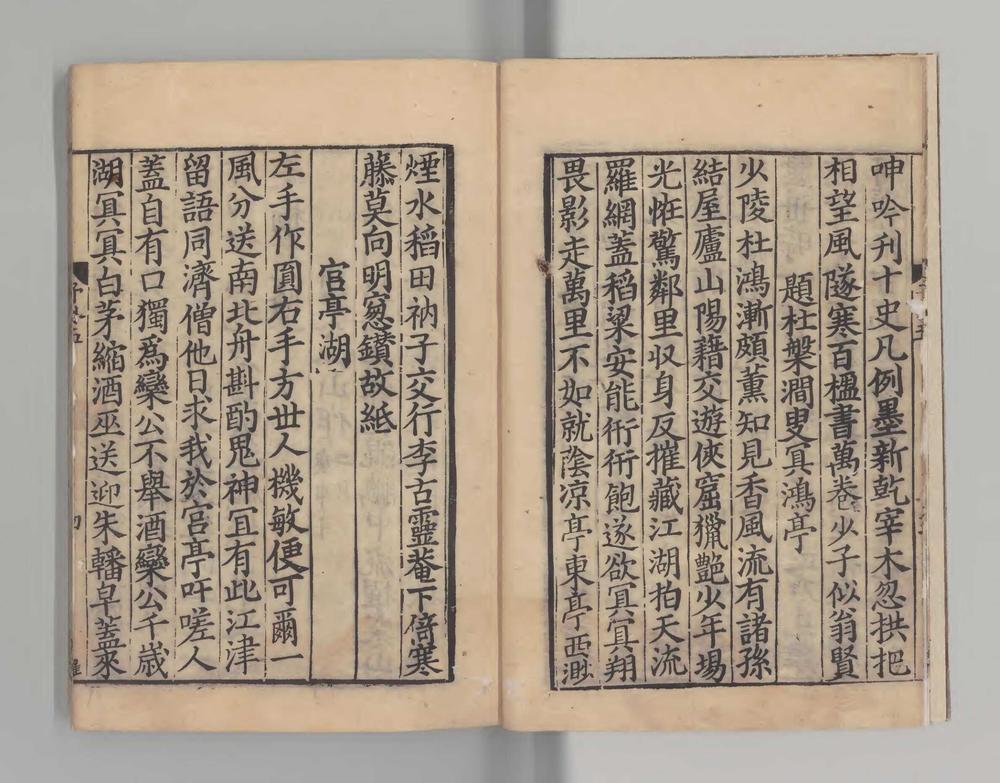 呻吟刋十史凡例墨新乾宰木忽拱把
相望風隧寒百楹書萬卷少子似翁賢
題杜槃澗叟㝠鴻亭
少陵杜鴻漸頗薰知見香風流有諸孫
結屋廬山陽藉交遊俠窟獵艷少年場
光恠驚鄰里収身反摧藏江湖拍天流
羅網蓋稻粱安能衎衎飽遂欲㝠㝠翔
畏影走萬里不如就陰凉亭東亭西㴽
煙水稻田衲子交行李古靈菴下倚寒
藤莫向明窻鑽故紙
宮亭湖
左手作圎右手方丗人機敏便可爾一
風分送南北舟斟酌鬼神冝有此江津
留語同濟僧他日求我於宮亭吁嗟人
蓋自有口獨爲欒公不舉酒欒公千歳
湖㝠㝠白茅縮酒巫送迎朱轓皁蓋來